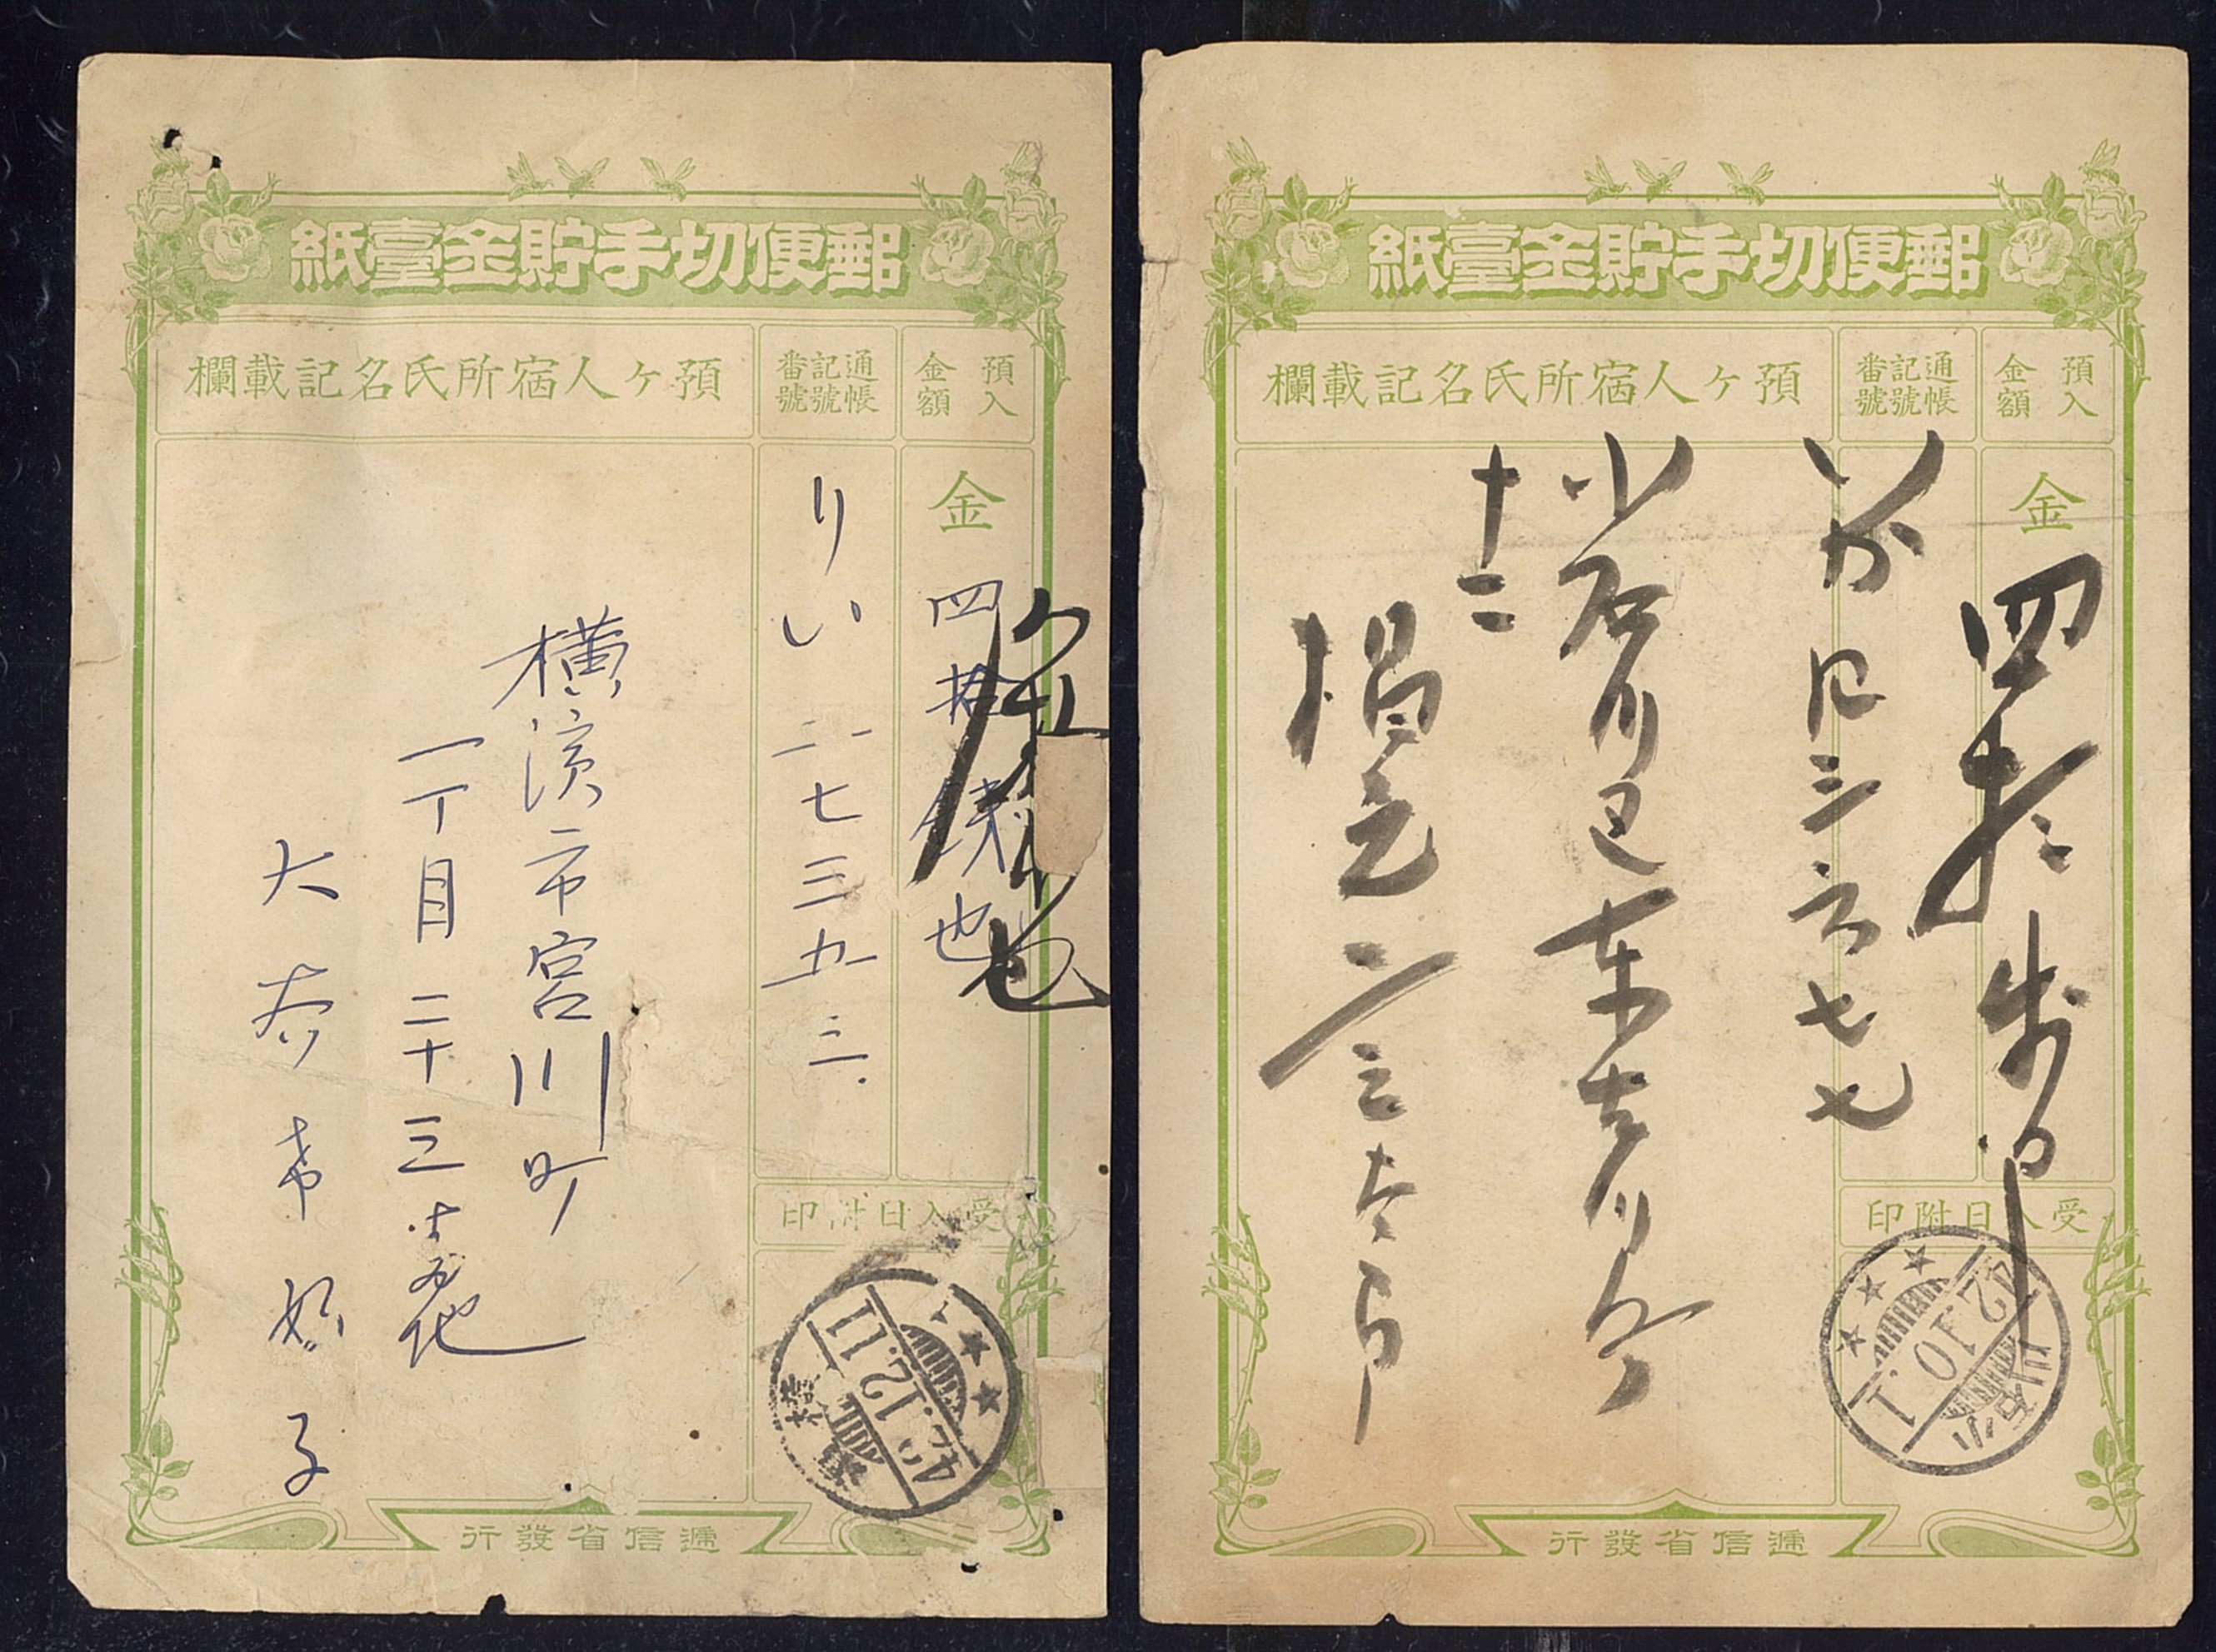 郵便切手貯金臺紙
預入金額
通帳記號番號
預ケ人宿所氏名記載欄
金
四拾錢也
也
りい二七三九三
橫濱市宮川町
一丁目二十三
子
受入日附印
42.12.11
遞信省發行
郵便切手貯金臺紙
預入金額
通帳記號番號
預ケ人宿所氏名記載欄
金
四拾錢
三六七七
小石川区東古川
十二
三太郎
受入日附印
小石川
42.10.1
遞信省發行